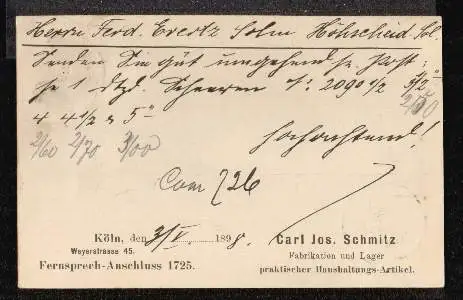 Herrn Ferd. Evertz Sohn Höhscheid Sol.
Senden Sie gut umgehend pr. Post:
je 1 Dtzd. Scheeren N: 2090 1/2 5 1/2"
4 4 1/2 & 5"
2/60 2/70 3/00
Hochachtend!
Com 726
Köln, den 3/V. 1898.
Weyerstrasse 45.
Fernsprech-Anschluss 1725.
Carl Jos. Schmitz
Fabrikation und Lager
praktischer Haushaltungs-Artikel.